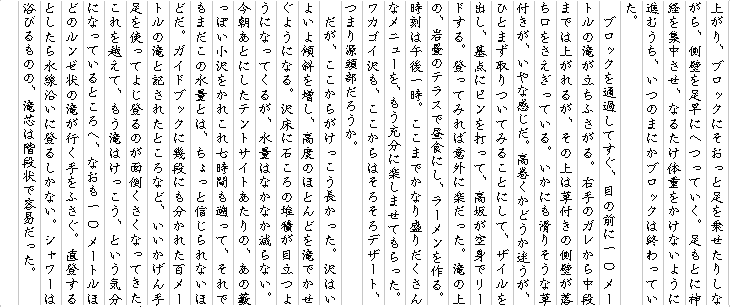 上がり、ブロックにそおっと足を乗せたりしな
がら、側壁を足早にへつっていく。足もとに神
経を集中させ、なるたけ体重をかけないように
進むうち、いつのまにかブロックは終わってい
た。
ブロックを通過してすぐ、目の前に一〇メー
トルの滝が立ちふさがる。右手のガレから中段
までは上がれるが、その上は草付きの側壁が落
ち口をさえぎっている。いかにも滑りそうな草
付きが、いやな感じだ。高巻くかどうか迷うが、
ひとまず取りついてみることにして、ザイルを
出し、基点にピンを打って、高坂が空身でリー
ドする。登ってみれば意外に楽だった。滝の上
の、岩畳のテラスで昼食にし、ラーメンを作る。
時刻は午後一時。ここまでかなり盛りだくさん
なメニューを、もう充分に楽しませてもらった。
ワカゴイ沢も、ここからはそろそろデザート、
つまり源頭部だろうか。
だが、ここからがけっこう長かった。沢はい
よいよ傾斜を増し、高度のほとんどを滝でかせ
ぐようになる。沢床に石ころの堆積が目立つよ
うになってくるが、水量はなかなか減らない。
今朝あとにしたテントサイトあたりの、あの薮
っぽい小沢をかれこれ七時間も遡って、それで
もまだこの水量とは、ちょっと信じられないほ
どだ。ガイドブックに幾段にも分かれた百メー
トルの滝と記されたところなど、いいかげん手
足を使ってよじ登るのが面倒くさくなってきた。
これを越えて、もう滝はけっこう、という気分
になっているところへ、なおも一〇メートルほ
どのルンゼ状の滝が行く手をふさぐ。直登する
としたら水線沿いに登るしかない。シャワーは
浴びるものの、滝芯は階段状で容易だった。